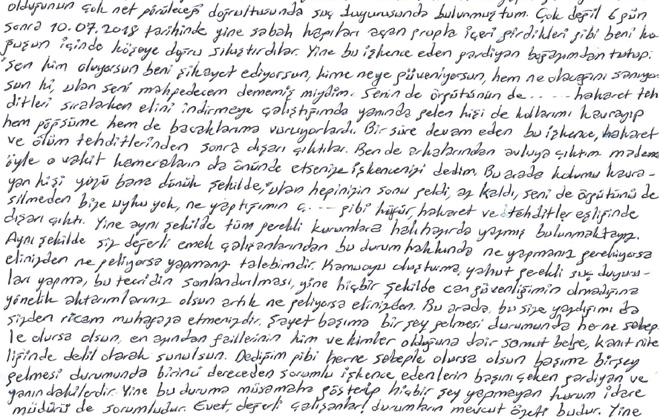 olduğunun çok net görüleceği doğrultusunda suç duyurusunda bulunmuştum. Çok değil 6 gün
sonra 10.07.2018 tarihinde yine sabah kapıları açan grupla içeri girdikleri gibi beni ko
ğuşun içinde köşeye doğru sıkıştırdılar. Yine bu işkence eden gardiyan boğazımdan tutup:
"Sen kim oluyorsun beni şikayet ediyorsun, kime neye güveniyorsun, hem ne olacağını sanıyor
sun ki, ulan seni mahpedecem dememiş miydim. Senin de örgütünün de ..... hakaret teh
ditleri sıralarken elini indirmeye çalıştığımda yanında gelen kişi de kollarımı kavrayıp
hem göğsüme hem de bacaklarıma vuruyorlardı. Bir süre devam eden bu işkence, hakaret
ve ölüm tehditlerinden sonra dışarı çıktılar. Ben de arkalarından avluya çıktım madem
öyle o vakit kameraların da önünde etsenize işkencenizi dedim. Bu arada kolumu kavra-
yan kişi yüzü bana dönük şekilde, "ulan hepinizin sonu geldi, az kaldı, seni de örgütünü de
silmeden bize uyku yok, ne yaptığımın ç.... gibi küfür, hakaret ve tehditler eşliğinde
dışarı çıktı. Yine aynı şekilde tüm gerekli kurumlara halihazırda yazmış bulunmaktayız.
Aynı şekilde siz değerli emek çalışanlarından bu durum hakkında ne yapmanız gerekiyorsa
elinizden ne geliyorsa yapmanız talebimdir. Kamuoyu oluşturma, yahut gerekli suç duyuru-
ları yapma, bu tecridin sonlandırılması, yine hiçbir şekilde can güvenliğimin olmadığına
yönelik aktarımlarınız olsun artık ne geliyorsa elinizden. Bu arada, bu size yazdığımı da
sizden ricam muhafaza etmenizdir. Şayet başıma bir şey gelmesi durumunda her ne sebep-
le olursa olsun, en azından faillerinin kim ve kimler olduğuna dair somut belge, kanıt nite
liğinde delil olarak sunulsun. Dediğim gibi herne sebeple olursa olsun başıma birşey
gelmesi durumunda birinci dereceden sorumlu işkence edenlerin başını çeken gardiyan ve
yanındakilerdir. Yine bu duruma müsamaha gösterip hiçbir şey yapmayan kurum idare
müdürü de sorumludur. Evet, değerli çalışanlar durumların mevcut özeti budur. Yine